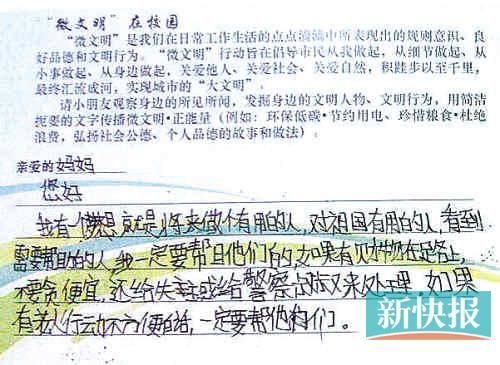 “微文明”在校园
“微文明”是我们在日常工作生活的点点滴滴中所表现出的规则意识、良
好品德和文明行为。“微文明”行动旨在倡导市民从我做起，从细节做起、从
小事做起、从身边做起，关爱他人、关爱社会、关爱自然，积跬步以至千里，
最终汇流成河，实现城市的“大文明”。
请小朋友观察身边的所见所闻，发掘身边的文明人物、文明行为，用简洁
扼要的文字传播微文明·正能量（例如：环保低碳·节约用电、珍惜粮食·杜绝
浪费，弘扬社会公德、个人品德的故事和做法）：
亲爱的妈妈
您好
我有个梦想就是将来做个有用的人，对祖国有用的人，看到
需要帮助的人，我一定要帮他们的，如果有财物在路上，
不要贪便宜，还给失主或给警察叔叔来处理，如果
有人行动不方便的话，一定要帮他们。
新快报